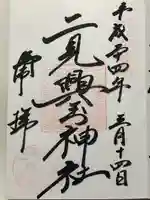 平成廿四年 三月十四日
二見興玉神社
奉拝